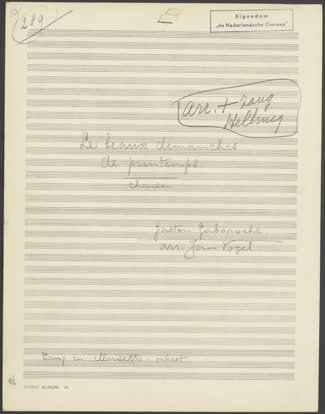 289
Eigendom
„de Nederlandsche Omroep"
arr. + zang
Le beaux dimanches
de printemps
chanson
Gaston Gabaroche
arr. Jan Vogel
Zang en Musette-orkest